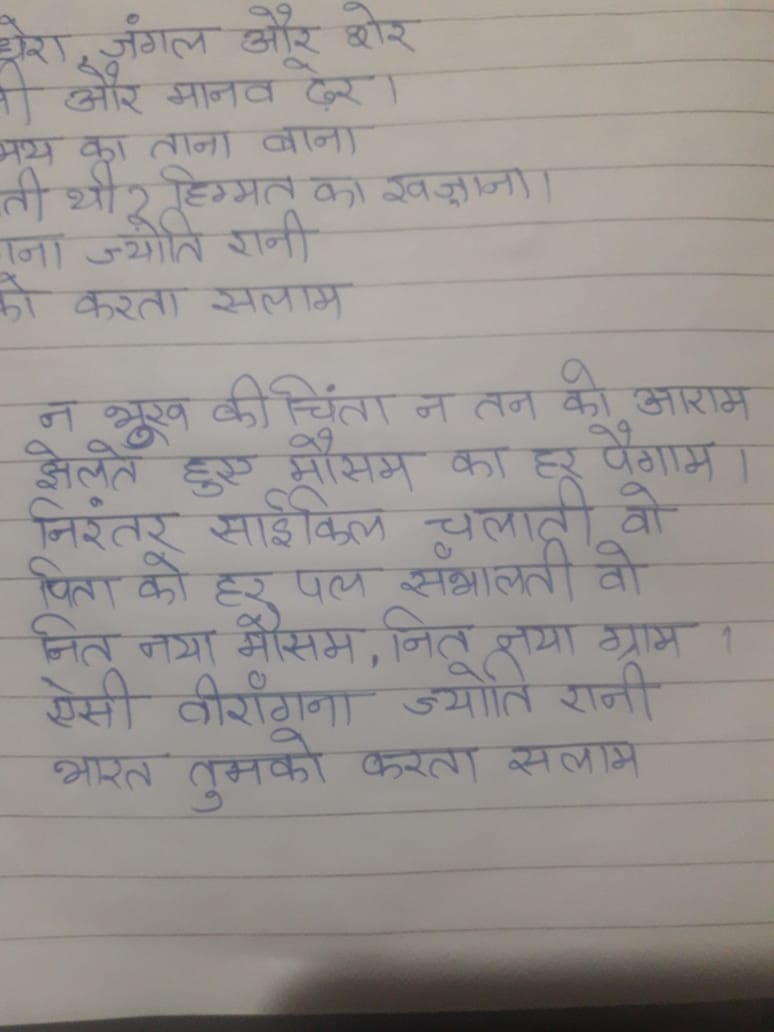 जंगल और शेर
और मानव ढेर।
का ताना बाना
थी? हिम्मत का खज़ाना।
ज्योति रानी
करता सलाम
न भूख की चिंता न तन को आराम
झेलते हुए मौसम का हर पैगाम।
निरंतर साईकिल चलाती वो
पिता को हर पल संभालती वो
नित नया मौसम, नित नया ग्राम।
ऐसी वीरांगना ज्योति रानी
भारत तुमको करता सलाम